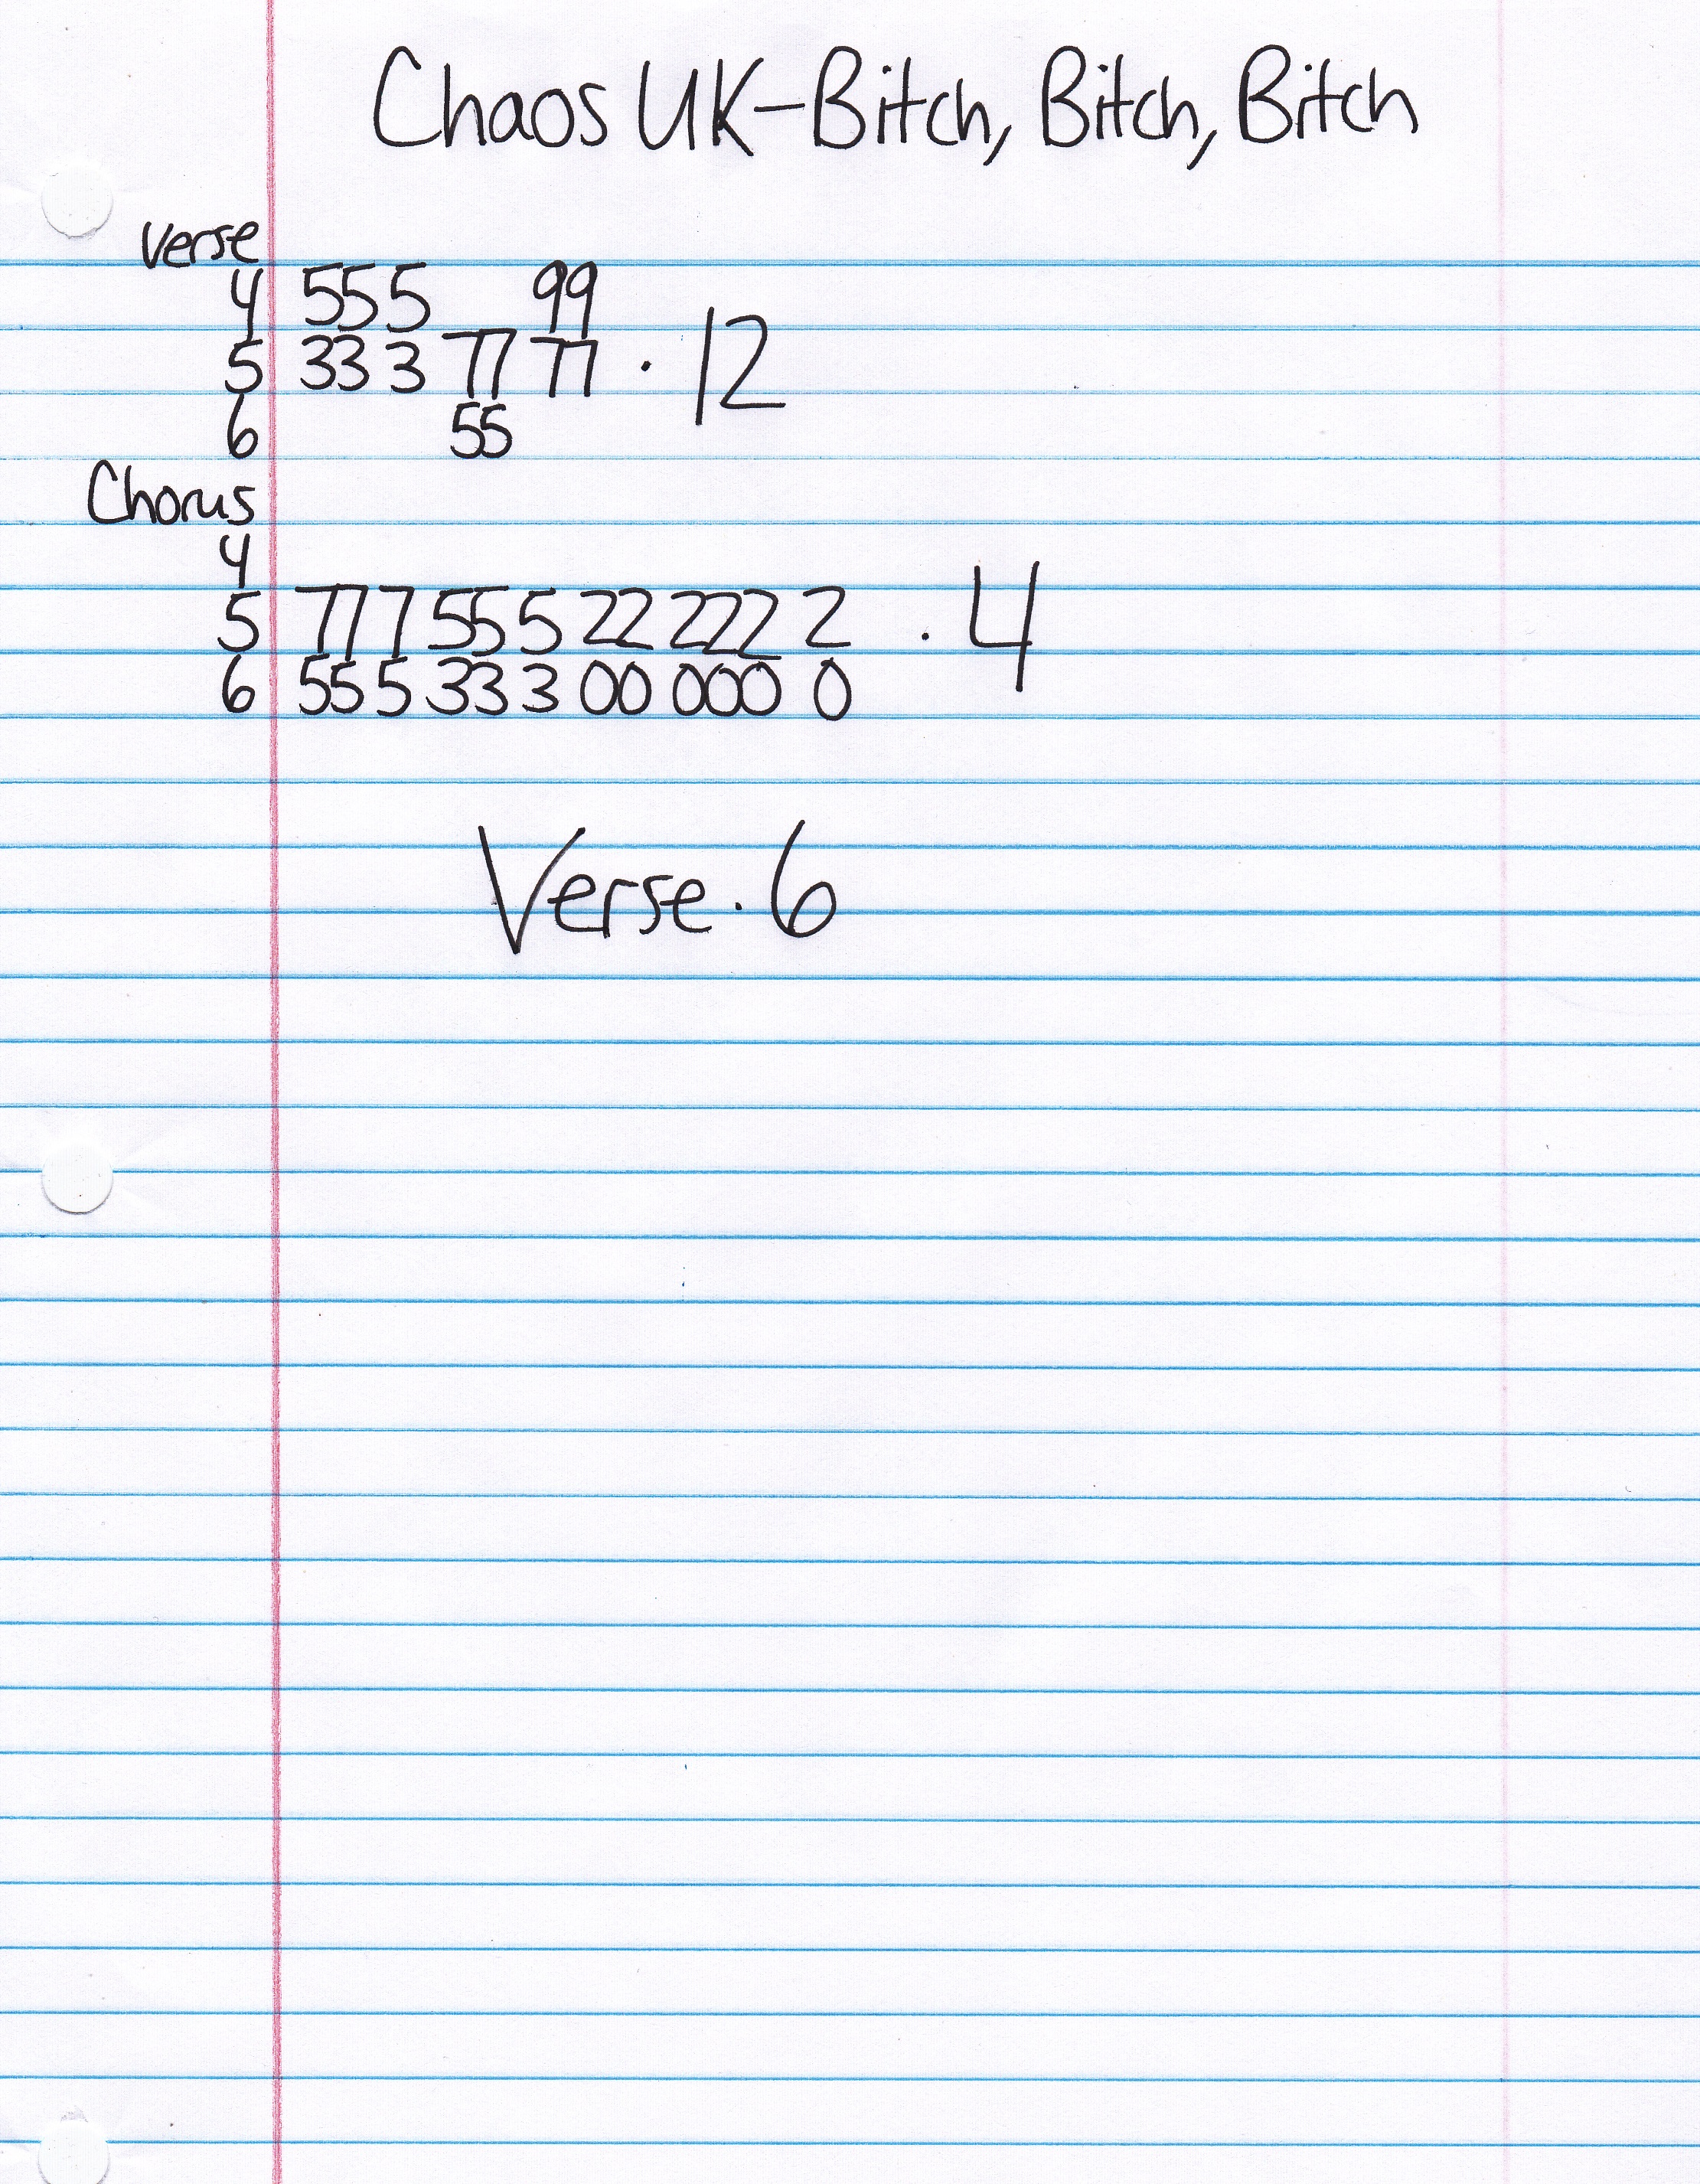 Chaos UK-Bitch, Bitch, Bitch
Verse
4 555 99
5 33 3 77 77 · 12
6 55
Chorus
4
5 77 7 55 5 22 222 2 · 4
6 55 5 33 3 00 000 0
Verse · 6